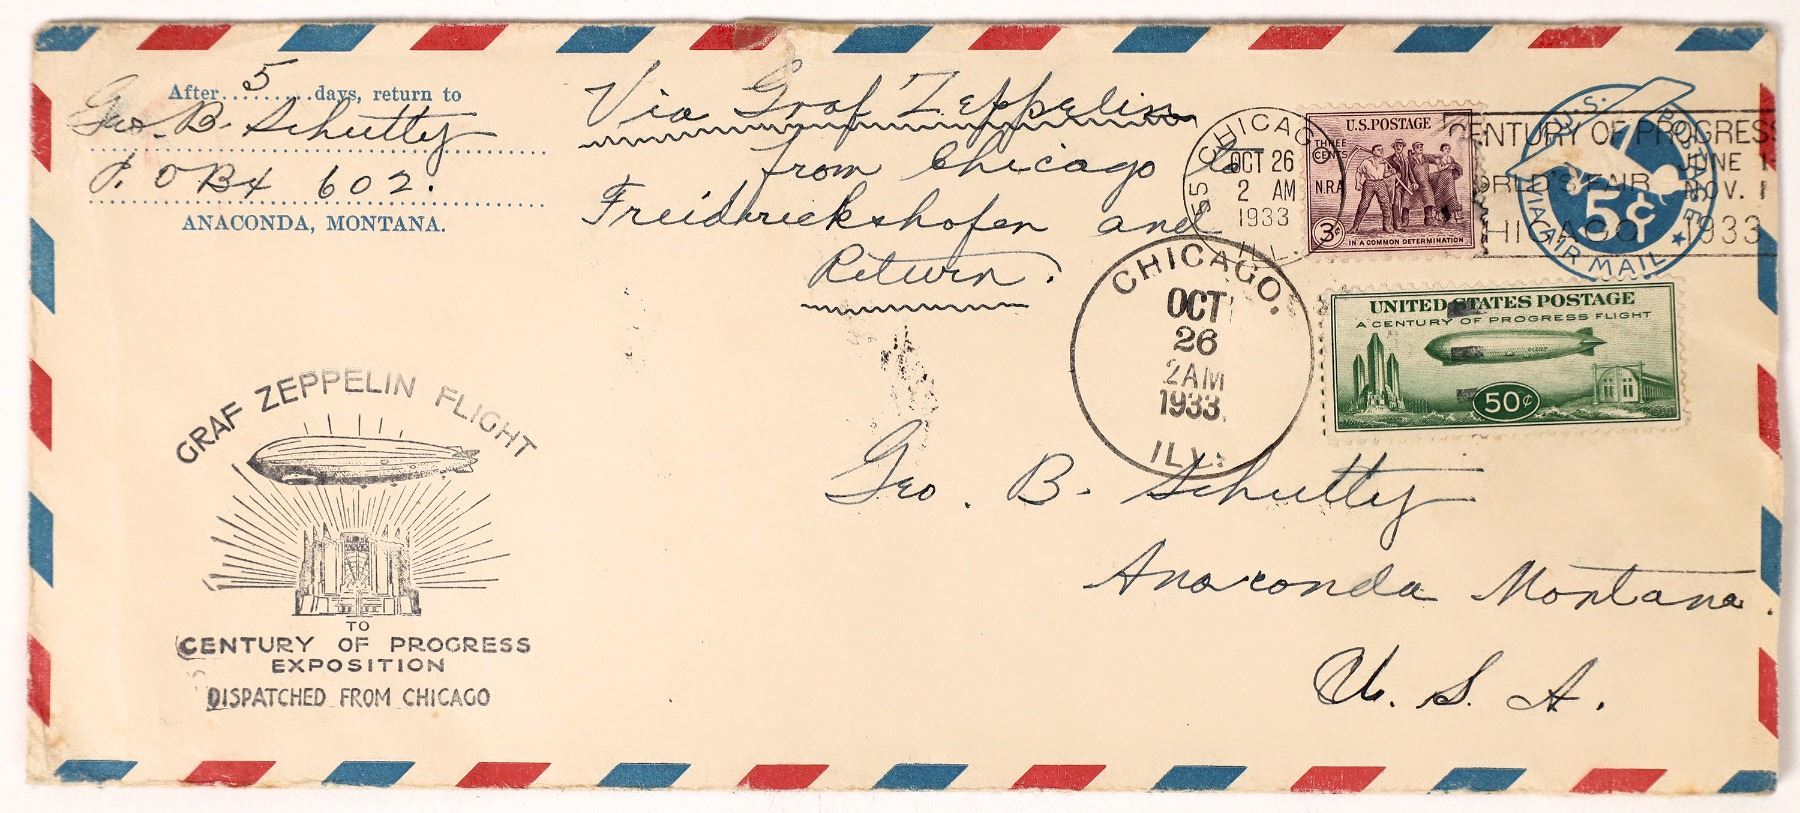 After 5 days, return to
Geo. B. Schutty
P. O Box 602.
ANACONDA, MONTANA.
Via Graf Zeppelin
from Chicago to
Freidrickshofen and
Return.
55 CHICAGO
OCT 26
2 AM
1933
ILL.
U.S. POSTAGE
THREE
CENTS
N.R.A.
3¢
IN A COMMON DETERMINATION
CENTURY OF PROGRESS
JUNE 1
WORLD'S FAIR
NOV. 1
CHICAGO 1933
U.S. POSTAGE
5¢
VIA AIR MAIL
CHICAGO.
OCT
26
2AM
1933.
ILL.
UNITED STATES POSTAGE
A CENTURY OF PROGRESS FLIGHT
50¢
Geo. B. Schutty
Anaconda Montana.
U. S. A.
GRAF ZEPPELIN FLIGHT
TO
CENTURY OF PROGRESS
EXPOSITION
DISPATCHED FROM CHICAGO